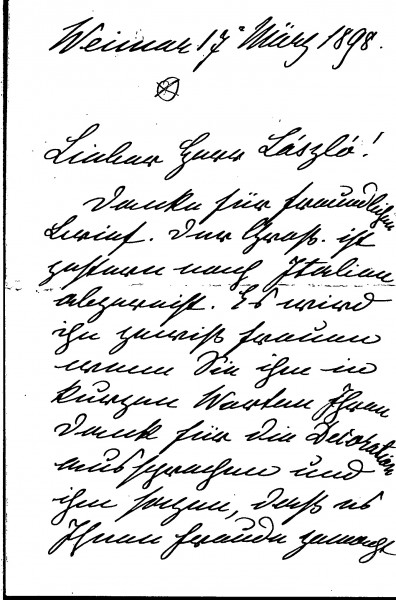 Weimar 17. März 1898.
Lieber Herr László!
Danke für freundlichen
Brief. Der Groß. ist
gestern nach Italien
abgereist. Es wird
ihn gewiß freuen
wenn Sie ihm in
kurzen Worten Ihren
Dank für die Decoration
aussprechen und
ihm sagen, daß es
Ihnen Freude gemacht